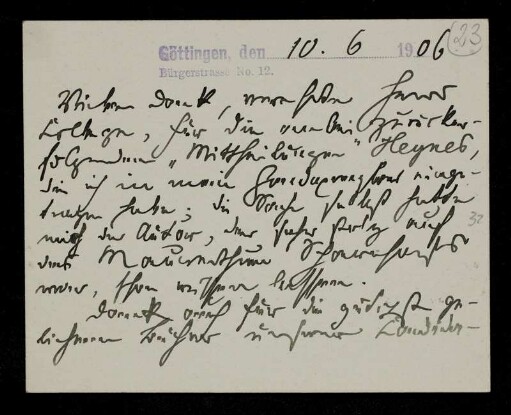 Göttingen, den 10. 6 1906
23
Bürgerstrasse No. 12.
Vielen Dank, verehrter Herr
College, für die anbei zurücker-
folgenden "Mittheilungen" Heynes,
die ich in mein Handexemplar einge-
tragen habe; die Sache selbst hatte
mich der Autor, der sehr stolz auf
das
war, schon wissen lassen.
Dank auch für die gütigst ge-
liehenen Bücher unseres